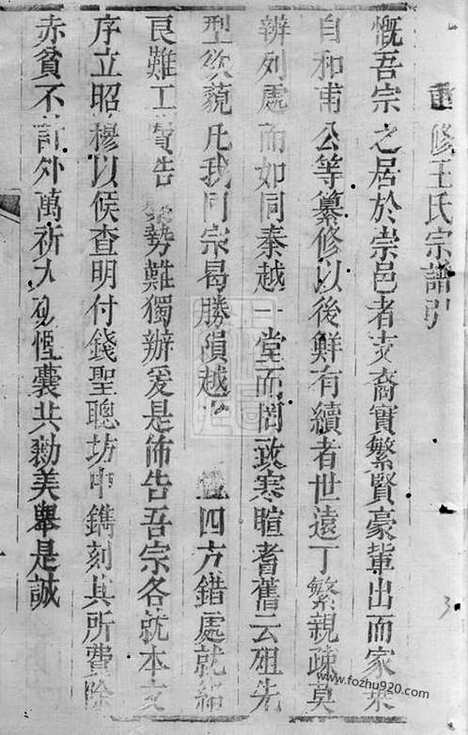 重修王氏宗譜引
慨吾宗之居於崇邑者支裔實繁賢豪輩出而家乘
自和甫公等纂修以後鮮有續者世遠丁繁親疎莫
辨列處而如同秦越一堂而罔致寒暄耆舊云徂先
型從藐凡我同宗曷勝隕越 四方錯處就紹
良難工費告 勢難獨辦爰是佈告吾宗各就本支
序立昭穆以俟查明付錢聖聰坊中鐫刻其所費除
赤貧不計外萬祈大 慳囊共勷美舉是誠
www.fozhu920.com